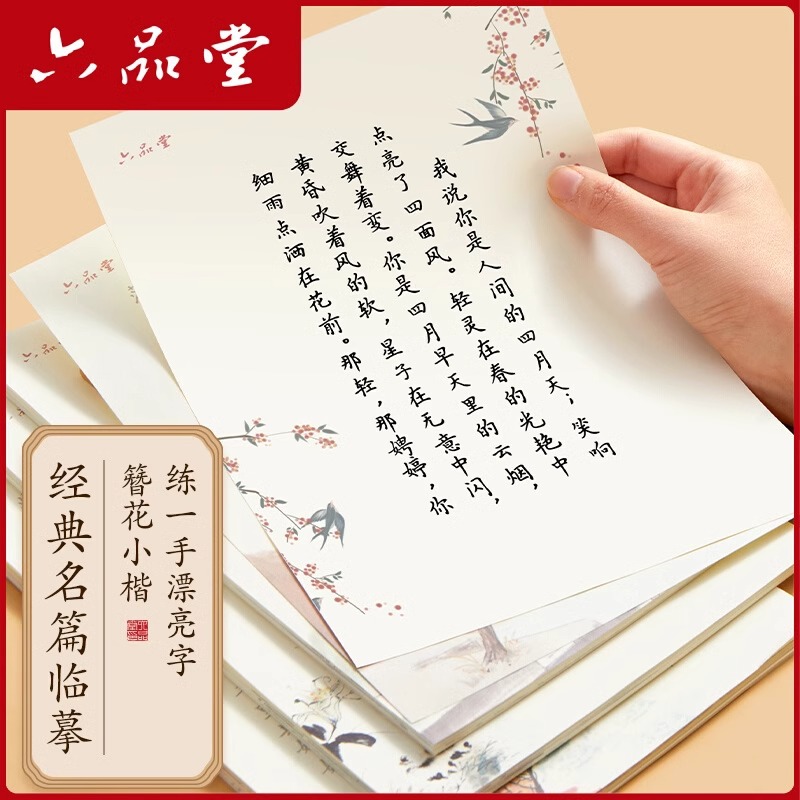 六品堂
六品堂
我说你是人间的四月天；笑响
点亮了四面风。轻灵在春的光艳中
交舞着变。你是四月早天里的云烟，
黄昏吹着风的软，星子在无意中闪，
细雨点洒在花前。那轻，那娉婷，你
六品堂
六品堂
练一手漂亮字
簪花小楷
经典名篇临摹